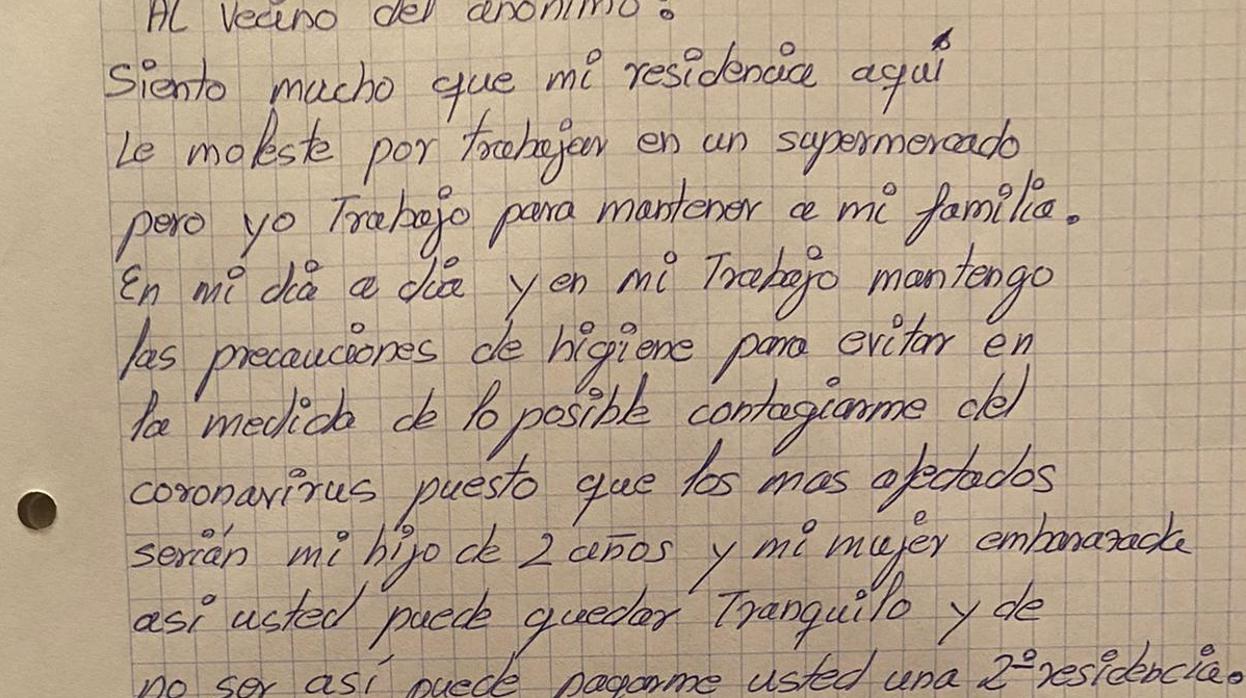 Al vecino del anónimo:
Siento mucho que mi residencia aquí
le moleste por trabajar en un supermercado
pero yo Trabajo para mantener a mi familia.
En mi día a día y en mi Trabajo mantengo
las precauciones de higiene para evitar en
la medida de lo posible contagiarme del
coronavirus puesto que los mas afectados
serían mi hijo de 2 años y mi mujer embarazada
asi usted puede quedar Tranquilo y de
no ser así puede pagarme usted una 2º residencia.